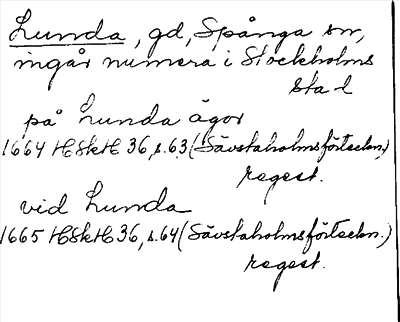 Lunda, gd, Spånga sn,
ingår numera i Stockholms
stad
på Lunda ägor
1664 HSkH 36, s. 63 (Sävstaholmsförteckn.)
regest.
vid Lunda
1665 HSkH 36, s. 64 (Sävstaholmsförteckn.)
regest.